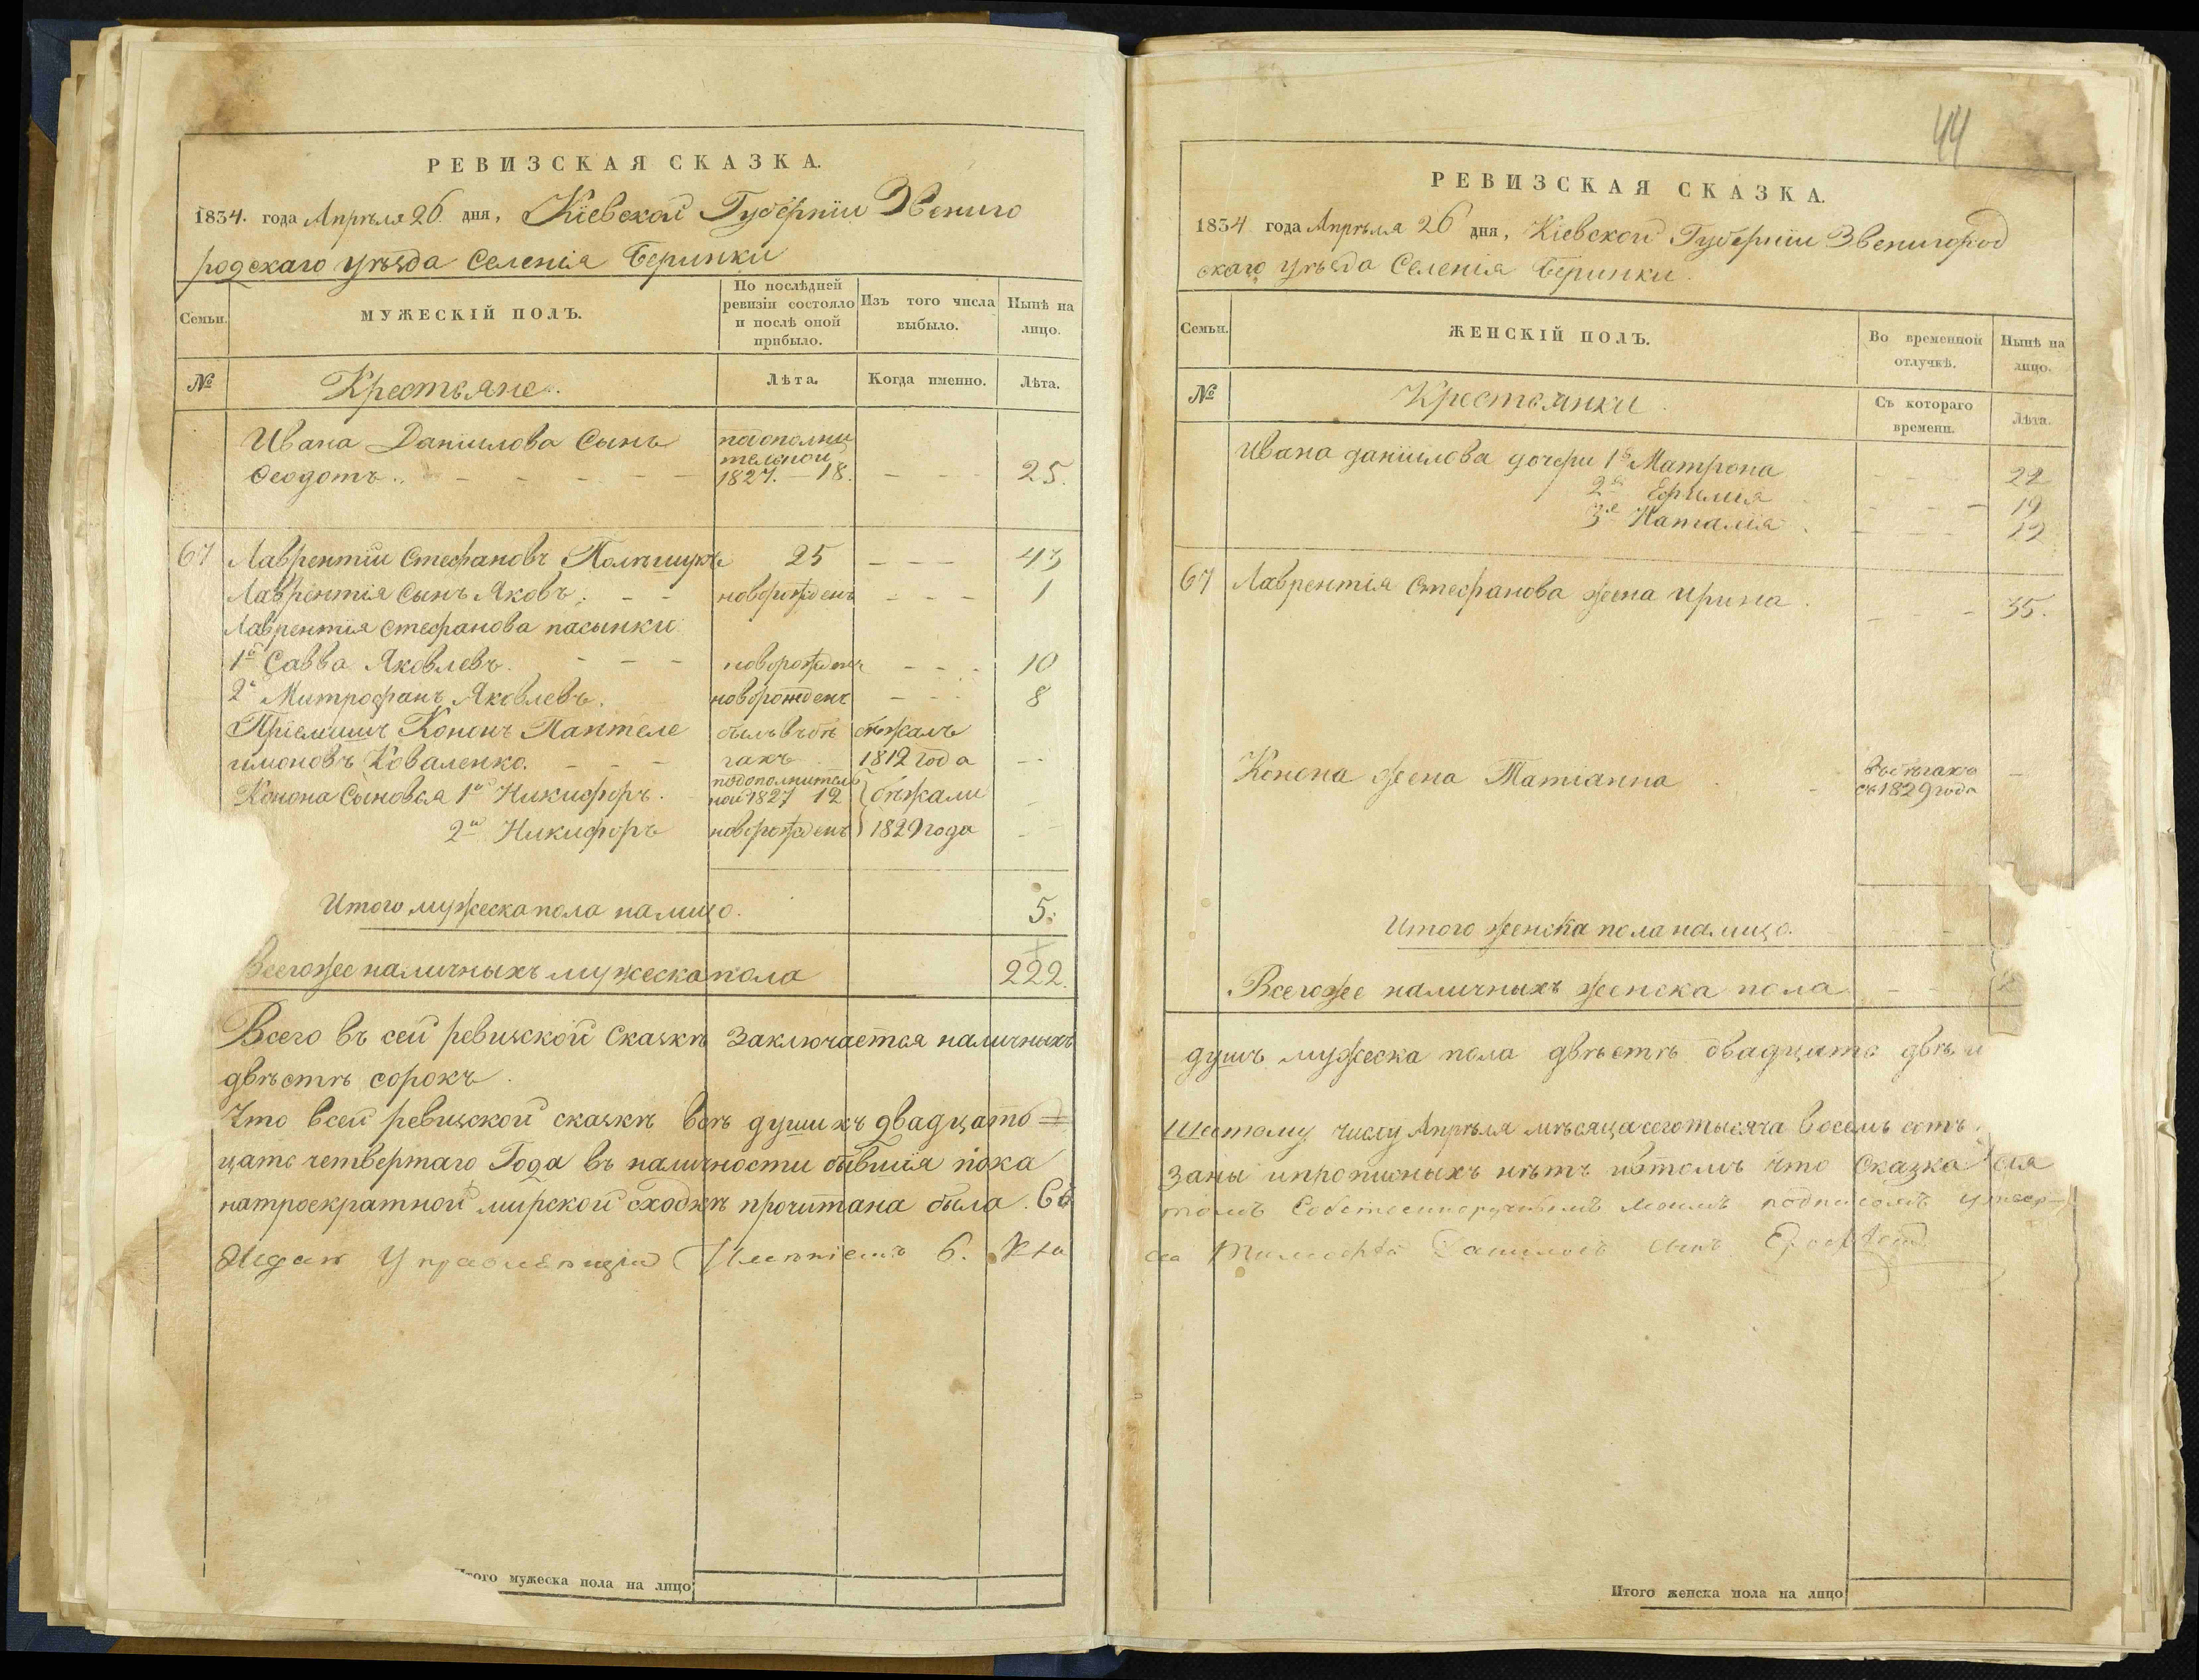 РЕВИЗСКАЯ СКАЗКА.
1834. года Апрѣля 26. дня, Кіевской Губерніи Звениго
родскаго уѣзда Селенія Беринки
Семьи.
МУЖЕСКІЙ ПОЛЪ.
По послѣдней ревизіи состояло и послѣ оной прибыло.
Изъ того числа выбыло.
Нынѣ на лицо.
№
Крестьяне.
Лѣта.
Когда именно.
Лѣта.
Ивана Даніилова Сынъ
подополни
тельной
Ѳеодотъ 1827. — 18. 25.
67 Лаврентій Стефановъ Полѣщукъ 25 43
Лаврентія Сынъ Яковъ. новорожденъ 1
Лаврентія Стефанова пасынки
1й Савва Яковлевъ. новорожденъ 10
2й Митрофанъ Яковлевъ. новорожденъ 8
Пріемышъ Кононъ Пантеле былъ въ бѣ бѣжалъ
имоновъ Коваленко. гахъ 1812 года
Конона Сыновья 1й Никифоръ. подополнитель
ной 1827 12 бѣжали
2й Никифоръ новорожденъ 1829 года
Итого мужеска пола на лицо. 5.
Всегоже наличныхъ мужеска пола 222.
Всего въ сей ревизской Сказкѣ заключается наличныхъ
двѣстѣ сорокъ.
Что всей ревизской сказкѣ всѣ души къ двадцать =
цать четвертаго Года въ наличности бывшія пока
натроекратной мирской сходкѣ прочитана была. Съ
Управляющій Имѣніемъ
Итого мужеска пола на лицо
44
РЕВИЗСКАЯ СКАЗКА.
1834 года Апрѣля 26 дня, Кіевской Губерніи Звенигород
скаго уѣзда Селенія Беринки.
Семьи.
ЖЕНСКІЙ ПОЛЪ.
Во временной отлучкѣ.
Нынѣ на лицо.
№
Крестьянки
Съ котораго времени.
Лѣта.
Ивана Даніилова дочери 1я Матрона 22
2я Ефимія 19
3я Наталія 12
67 Лаврентія Стефанова жена Ирина. 35.
Конона жена Татіанна въ бѣгахъ
съ 1829 года
Итого женска пола на лицо.
Всегоже наличныхъ женска пола
душъ мужеска пола двѣстѣ двадцать двѣ и
Шестому числу Апрѣля мѣсяца сего тысяча восемь сотъ
заны ипрописныхъ нѣтъ ивтомъ что Сказка сія
томъ Собственноручнымъ моимъ подписомъ
Итого женска пола на лицо